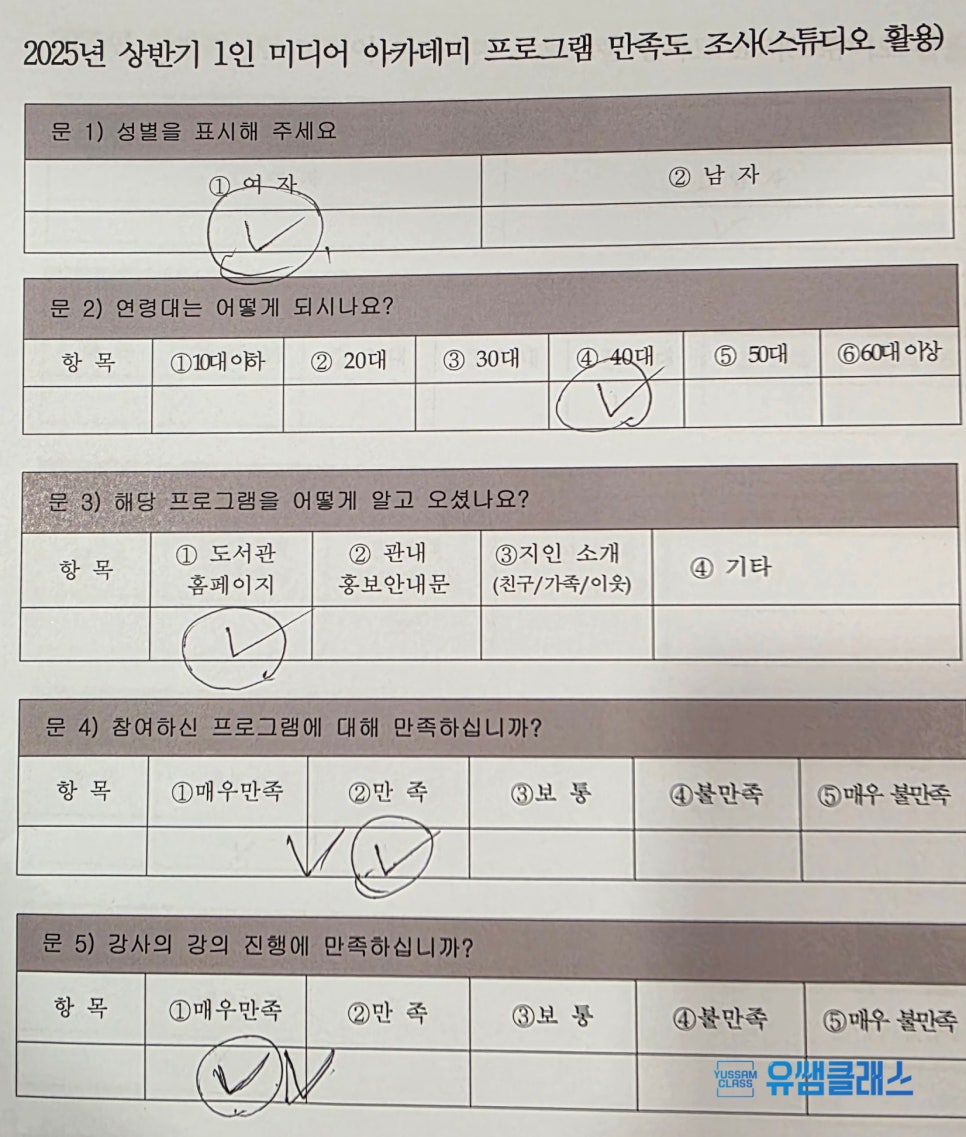 2025년 상반기 1인 미디어 아카데미 프로그램 만족도 조사(스튜디오 활용)
문 1) 성별을 표시해 주세요
① 여 자 ② 남 자
문 2) 연령대는 어떻게 되시나요?
항 목 ①10대 이하 ② 20대 ③ 30대 ④ 40대 ⑤ 50대 ⑥60대 이상
문 3) 해당 프로그램을 어떻게 알고 오셨나요?
항 목 ① 도서관 홈페이지 ② 관내 홍보안내문 ③지인 소개 (친구/가족/이웃) ④ 기타
문 4) 참여하신 프로그램에 대해 만족하십니까?
항 목 ①매우만족 ②만 족 ③보 통 ④불만족 ⑤매우 불만족
문 5) 강사의 강의 진행에 만족하십니까?
항 목 ①매우만족 ②만 족 ③보 통 ④불만족 ⑤매우 불만족
YUSSAM CLASS 유쌤클래스